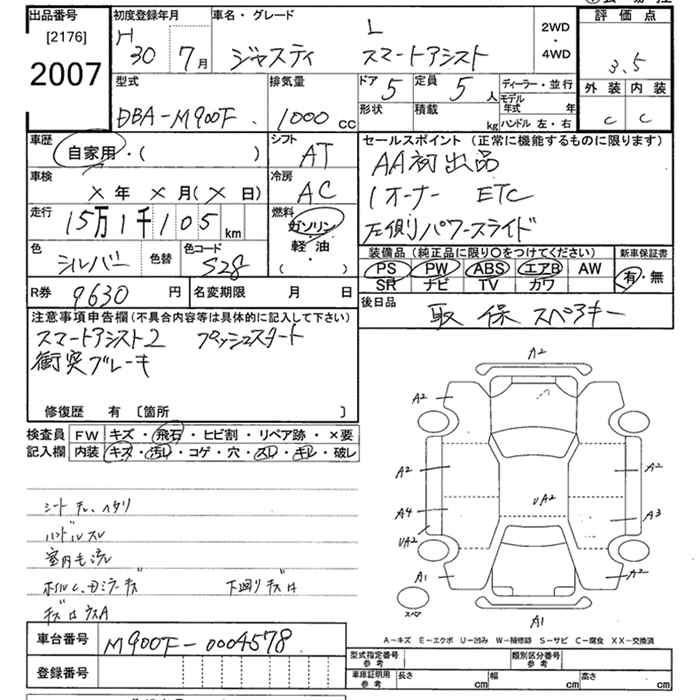 出品番号
[2176]
2007
初度登録年月
H 30 年 7 月
車名・グレード
L
ジャスティ スマートアシスト
2WD
・
4WD
評価点
3.5
外装 内装
C C
型式
DBA-M900F
排気量
1000 cc
ドア 5
定員 5 人
形状
積載 kg
ディーラー・並行
モデル年式 年
ハンドル 左・右
車歴
自家用・( )
シフト
AT
車検
× 年 × 月 (× 日)
冷房
AC
走行
15万1千105 km
燃料
ガソリン
軽油
・( )
色
シルバー
色替
色コード
S28
R券 9630 円
名変期限 月 日
セールスポイント（正常に機能するものに限ります）
AA初出品
1オーナー ETC
左側パワースライド
装備品（純正品に限り〇をつけてください）
新車保証書
PS PW ABS エアB AW
有・無
SR ナビ TV カワ
後日品
取 保 スペアキー
注意事項申告欄（不具合内容等は具体的に記入して下さい）
スマートアシスト2 プッシュスタート
衝突ブレーキ
修復歴 有 〔箇所 〕
検査員
記入欄
FW キズ・飛石・ヒビ割・リペア跡・×要
内装 キズ・汚レ・コゲ・穴・スレ・キレ・破レ
シート スレ、ヘタリ
ハンドルスレ
室内毛汚レ
下廻りキズ有
キズ有ウスA
車台番号
M900F-0004578
登録番号
A2
A2
A2
A2
A2
UA2
A4
A3
UA2
A1
A2
A1
スペア
A－キズ E－エクボ U－凹み W－補修跡 S－サビ C－腐食 XX－交換済
型式指定番号
参考
類別区分番号
参考
車庫証明用
参考
長さ cm
幅 cm
高さ cm